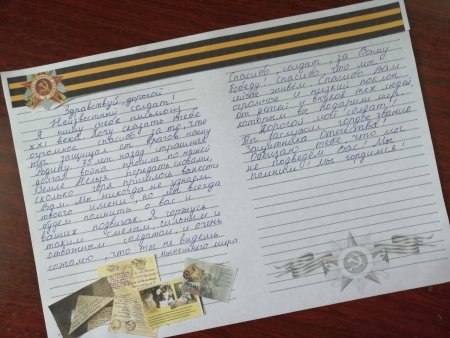 Здравствуй, дорогой
Неизвестный солдат!
Я пишу тебе письмо из
XXI века. Хочу сказать тебе
огромное спасибо за то, что
ты защищал от врагов нашу
Родину. 75 лет назад страшная
долгая война прошла по нашей
земле. Нельзя передать словами,
сколько горя пришлось вынести
Вам. Мы никогда не узнаем
твоего имени, но мы всегда
будем помнить о вас и
ваших подвигах. Я горжусь
таким смелым, сильным и
отважным солдатом, и очень
сожалею, что ты не видишь
нынешнего мира.
Спасибо, солдат, за Вашу
Победу! Спасибо, что мы
сейчас живём! Спасибо Вам
огромное и низкий поклон
от детей и внуков тех людей,
которым вы подарили мир.
Дорогой мой солдат!
Ты заслужил гордое звание
Защитника Отечества!
Обещаю тебе, что мы
не подведём Вас! Мы
помним! Мы гордимся!